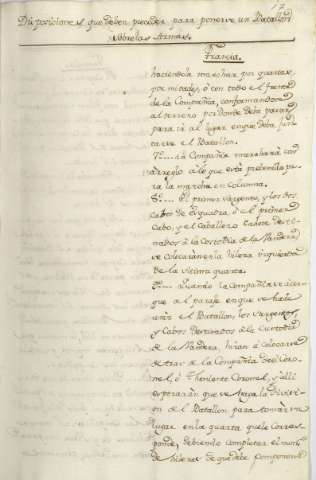 17
Disposiciones que deben preceder para ponerse un Batallon
sobre las Armas.
Francia.
haciendola marchar por quartas,
por mitades, ó con todo el frente
de la Compañia, conformandose
al terreno por donde deba pasar
para ir al lugar en que deba jun-
tarse el Batallon.
7º La Compañia marchará con
arreglo á lo que está prescrito pa-
ra la marcha en Columna.
8º El primer Sargento, y los dos
Cabos de Esquadra, ó el primer
Cabo, y el Caballero Cadete desti-
nados á la Custodia de la Bandera,
se colocarán en la hilera izquierda
de la ultima quarta.
9º Quando la Compañia lle-
gue al parage en que se halle
el Batallon, los Sargentos,
y Cabos destinados á la Custodia
de la Bandera, irán á colocarse
detras de la Compañia del Coro-
nel, ó Theniente Coronel, y alli
esperarán que se haga la Divisi-
on de el Batallon para tomar su
lugar en la quarta que le corres-
ponde, debiendo completar el num.
de hileras de que debe componerse